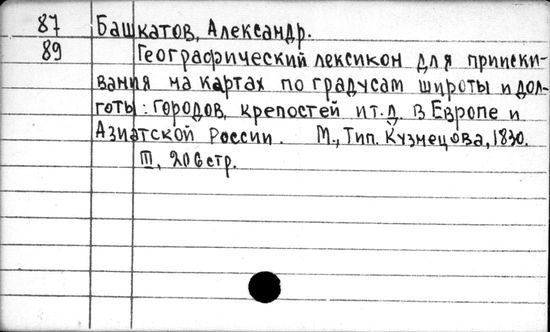 87 Башкатов, Александр.
89 Географический лексикон для приискивания
вания на картах по градусам широты и дол-
готы: городов, крепостей и т.п. в Европе и
Азиатской России. М., Тип. Кузнецова, 1830.
III, 206 стр.